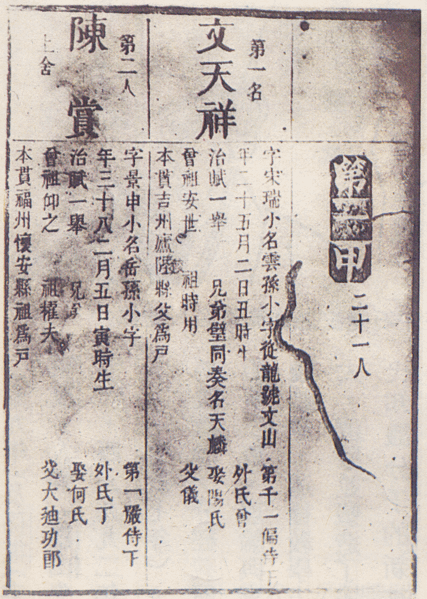 第一甲 二十一人
第一名
文天祥
字宋瑞小名雲孫小字從龍號文山 第千一偏侍下
年二十五月二日丑時生 外氏曾
治賦一舉 兄弟璧同奏名天麟 娶陽氏
曾祖安世 祖時用 父儀
本貫吉州廬陵縣父爲戶
第二人
陳賞
上舍
字景申小名岳孫小字 第一嚴侍下
年三十八二月五日寅時生 外氏丁
治賦一舉 兄 娶何氏
曾祖仰之 祖耀夫 父大廸功郎
本貫福州懷安縣祖爲戶